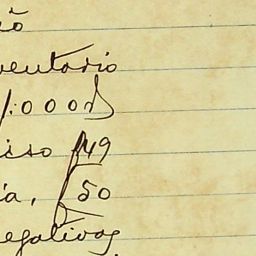 ão
ventario
1:000$
ciso f 49
ia, f 50
egativas